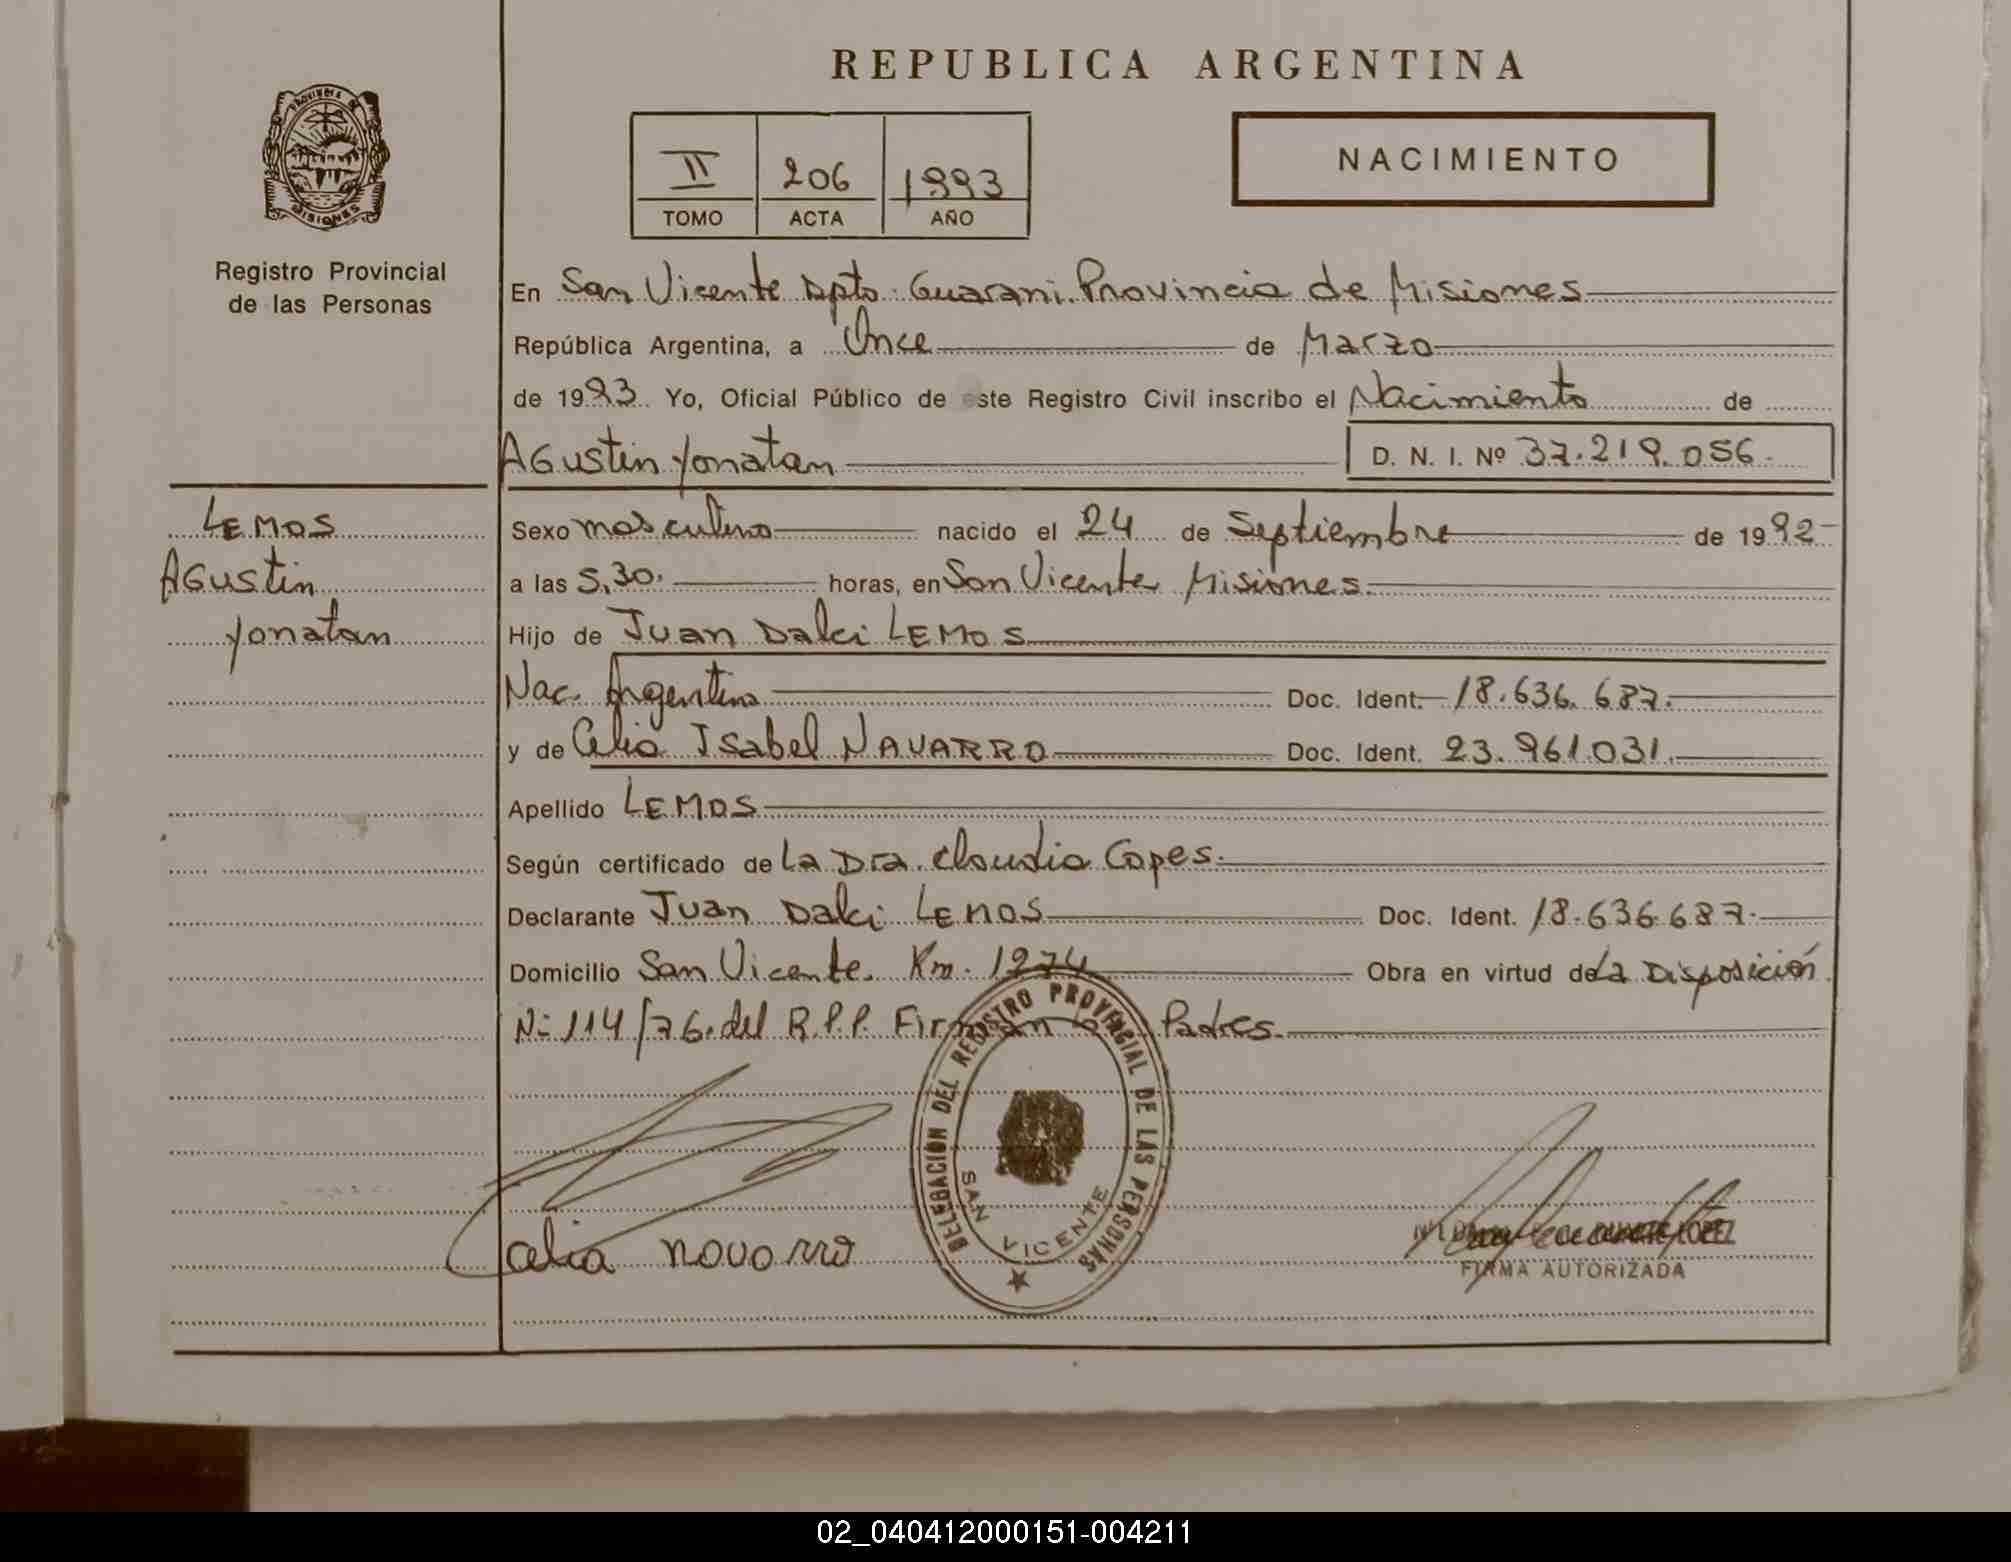 REPUBLICA ARGENTINA
PROVINCIA DE
MISIONES
Registro Provincial
de las Personas
II 206 1993
TOMO ACTA AÑO
NACIMIENTO
En San Vicente Dpto. Guarani. Provincia de Misiones
República Argentina, a Once de Marzo
de 1993. Yo, Oficial Público de este Registro Civil inscribo el Nacimiento de
AGustin Yonatan D. N. I. Nº 37.219.056.
LEMOS
AGustin
Yonatan
Sexo masculino nacido el 24 de Septiembre de 1992
a las 5,30. horas, en San Vicente Misiones.
Hijo de Juan Dalci LEMOS
Nac. Argentino Doc. Ident. 18.636.687.
y de Celia Isabel NAVARRO Doc. Ident. 23.961.031.
Apellido LEMOS
Según certificado de La Dra. Claudia Copes.
Declarante Juan Dalci LEMOS Doc. Ident. 18.636.687.
Domicilio San Vicente. Km. 1274 Obra en virtud de La Disposición
Nº 114/76. del R.P.P. Firman los Padres.
DELEGACIÓN DEL REGISTRO PROVINCIAL DE LAS PERSONAS
SAN VICENTE
Celia novarro
LOPEZ
FIRMA AUTORIZADA
02_040412000151-004211